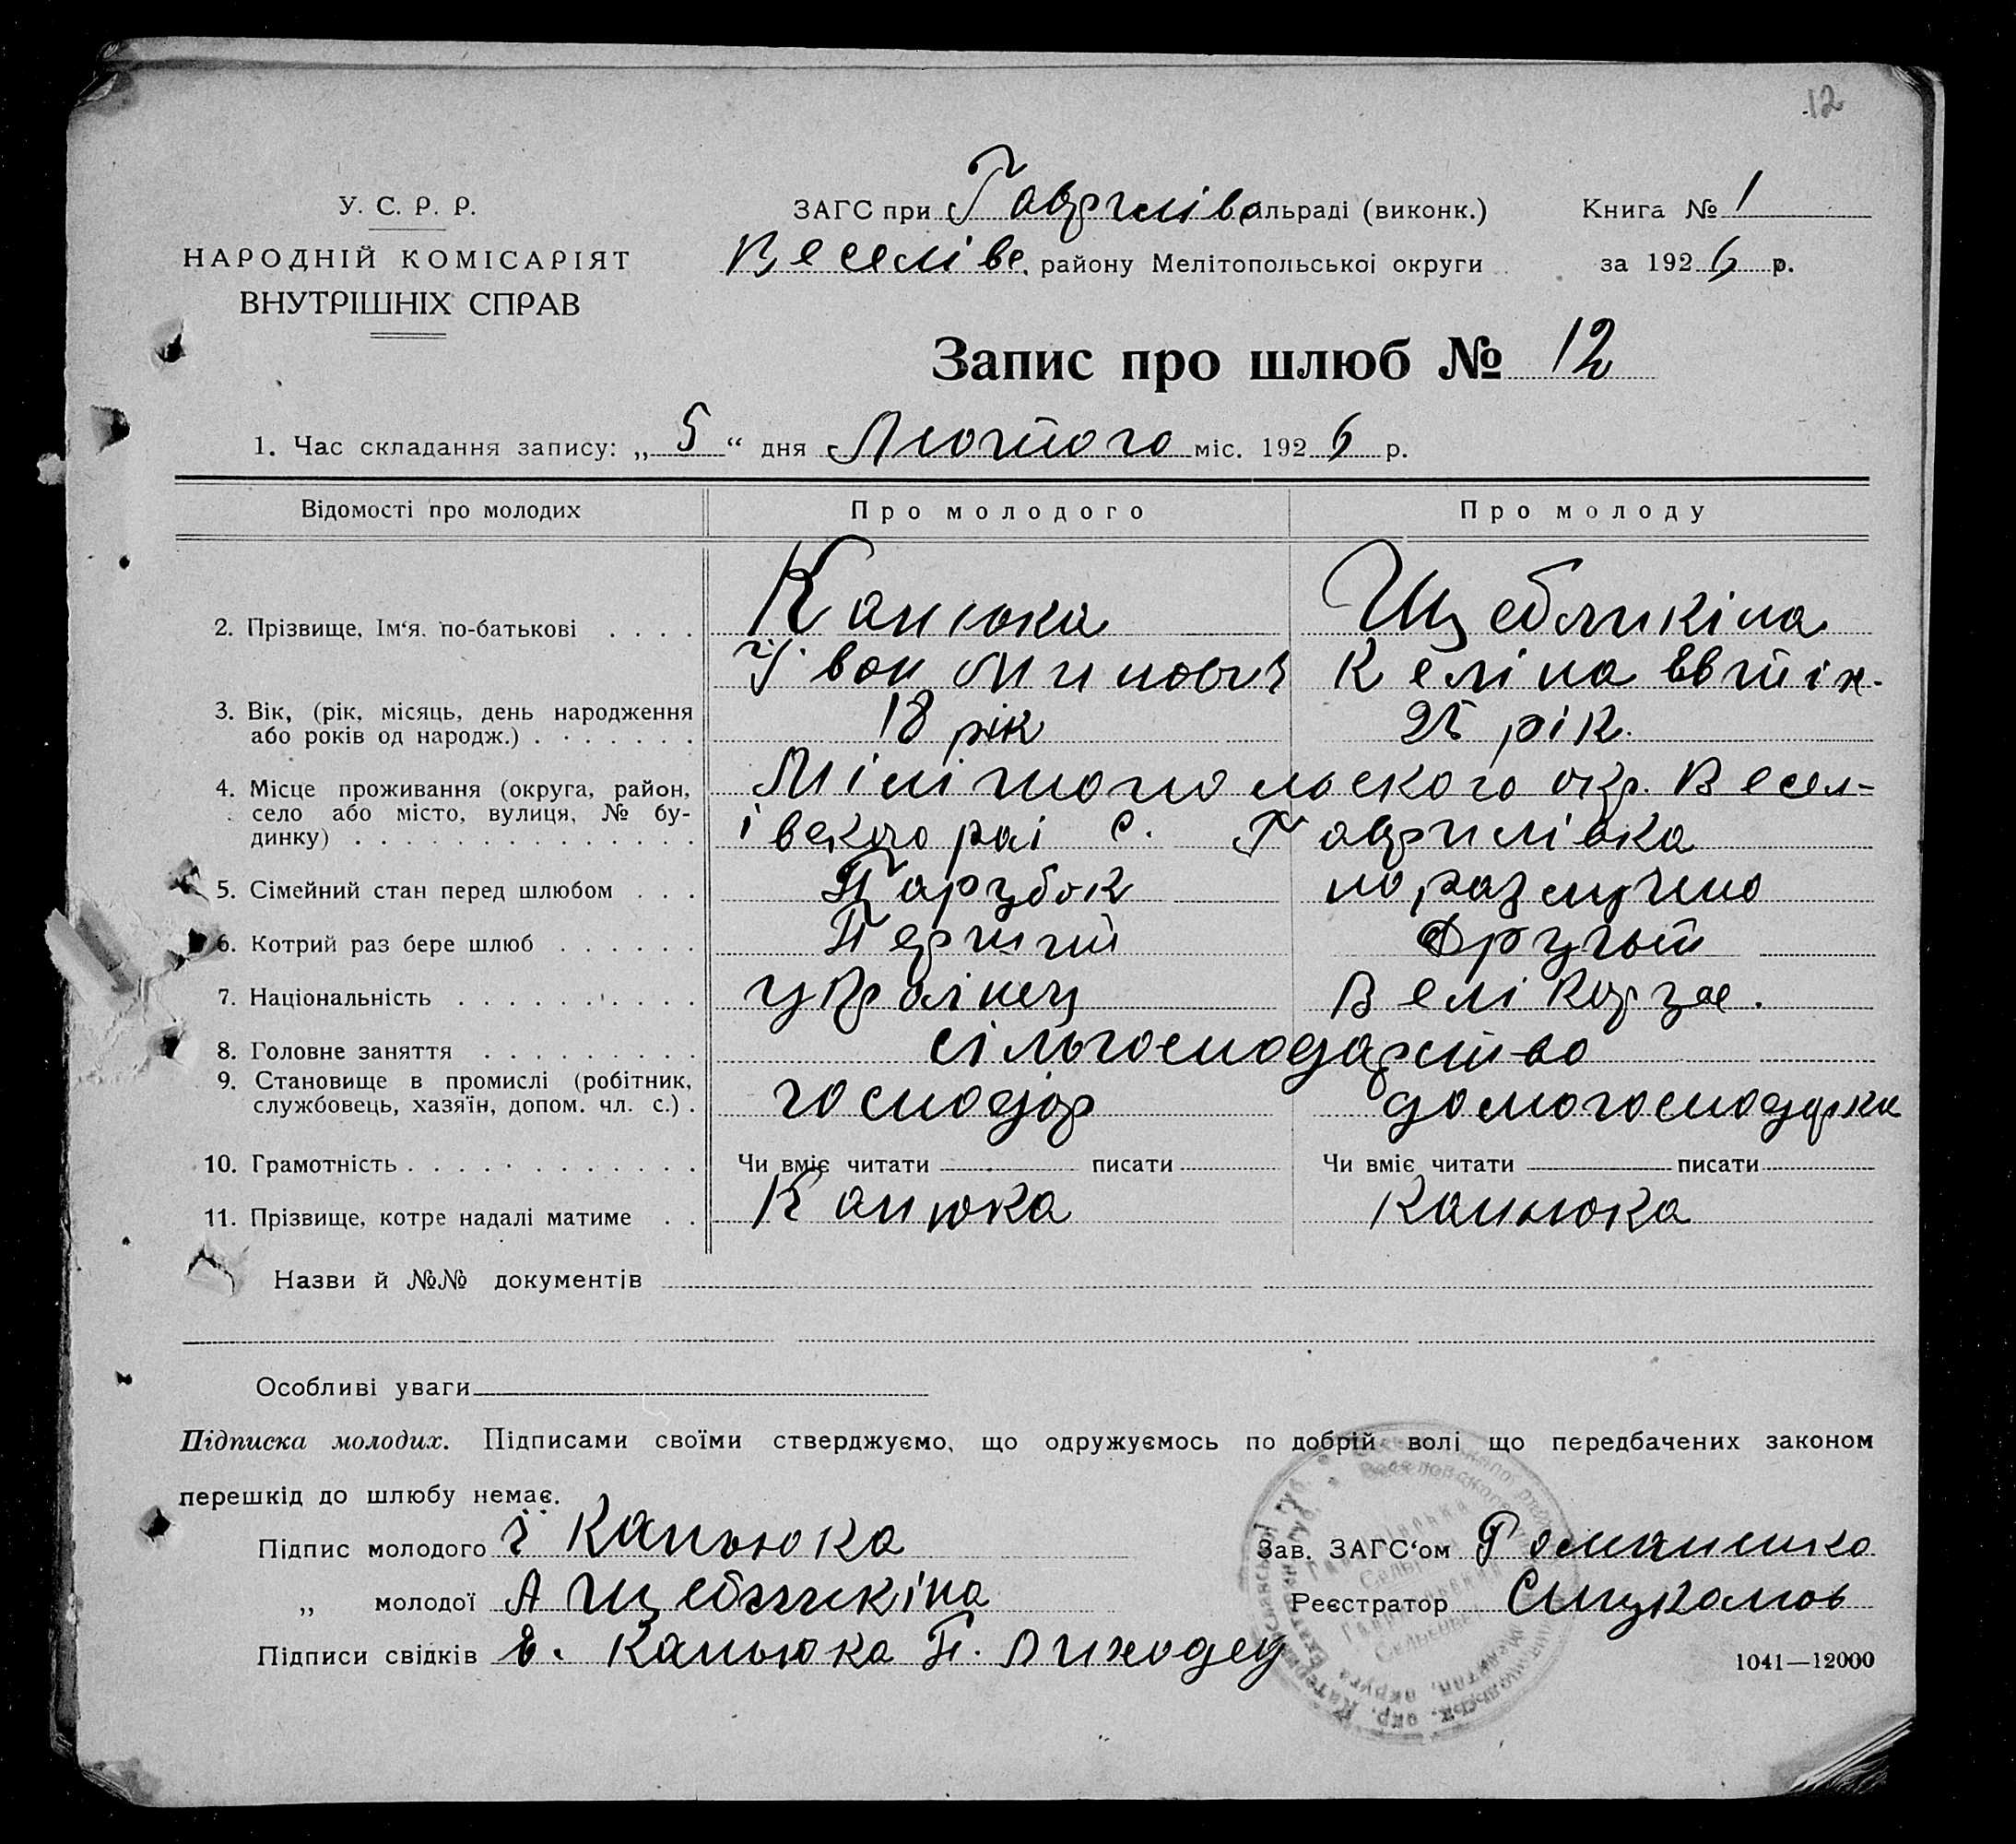 12
У. С. Р. Р.
НАРОДНІЙ КОМІСАРІЯТ
ВНУТРІШНІХ СПРАВ
ЗАГС при Гаврилівс.ільраді (виконк.)
Книга № 1
Веселівс. району Мелітопольської округи
за 1926 р.
Запис про шлюб № 12
1. Час складання запису: „ 5 “ дня Лютого міс. 1926 р.
Відомості про молодих Про молодого Про молоду
2. Прізвище, Ім'я, по-батькові Канюка Щебликіна
Іван Минович Келіна
3. Вік, (рік, місяць, день народження
або років од народж.) 18 рік 25 рік.
4. Місце проживання (округа, район,
село або місто, вулиця, № бу-
динку)
Мілітопольского окр. Весел-
івского раі с. Гаврилівка
5. Сімейний стан перед шлюбом Парубок по разлучно
6. Котрий раз бере шлюб Перший Другый
7. Національність українец Велікорус.
8. Головне заняття сільгосподарство
9. Становище в промислі (робітник,
службовець, хазяїн, допом. чл. с.) господар домогосподарка
10. Грамотність Чи вміє читати писати Чи вміє читати писати
11. Прізвище, котре надалі матиме Канюка Каньюка
Назви й №№ документів
Особливі уваги
Підписка молодих. Підписами своїми стверджуємо, що одружуємось по добрій волі що передбачених законом
перешкід до шлюбу немає.
Підпис молодого Ї Каньюка
Зав. ЗАГС'ом Романенко
„ молодої А Щебликіна
Реєстратор
Підписи свідків Е. Каньюка П. Лиходед
1041—12000